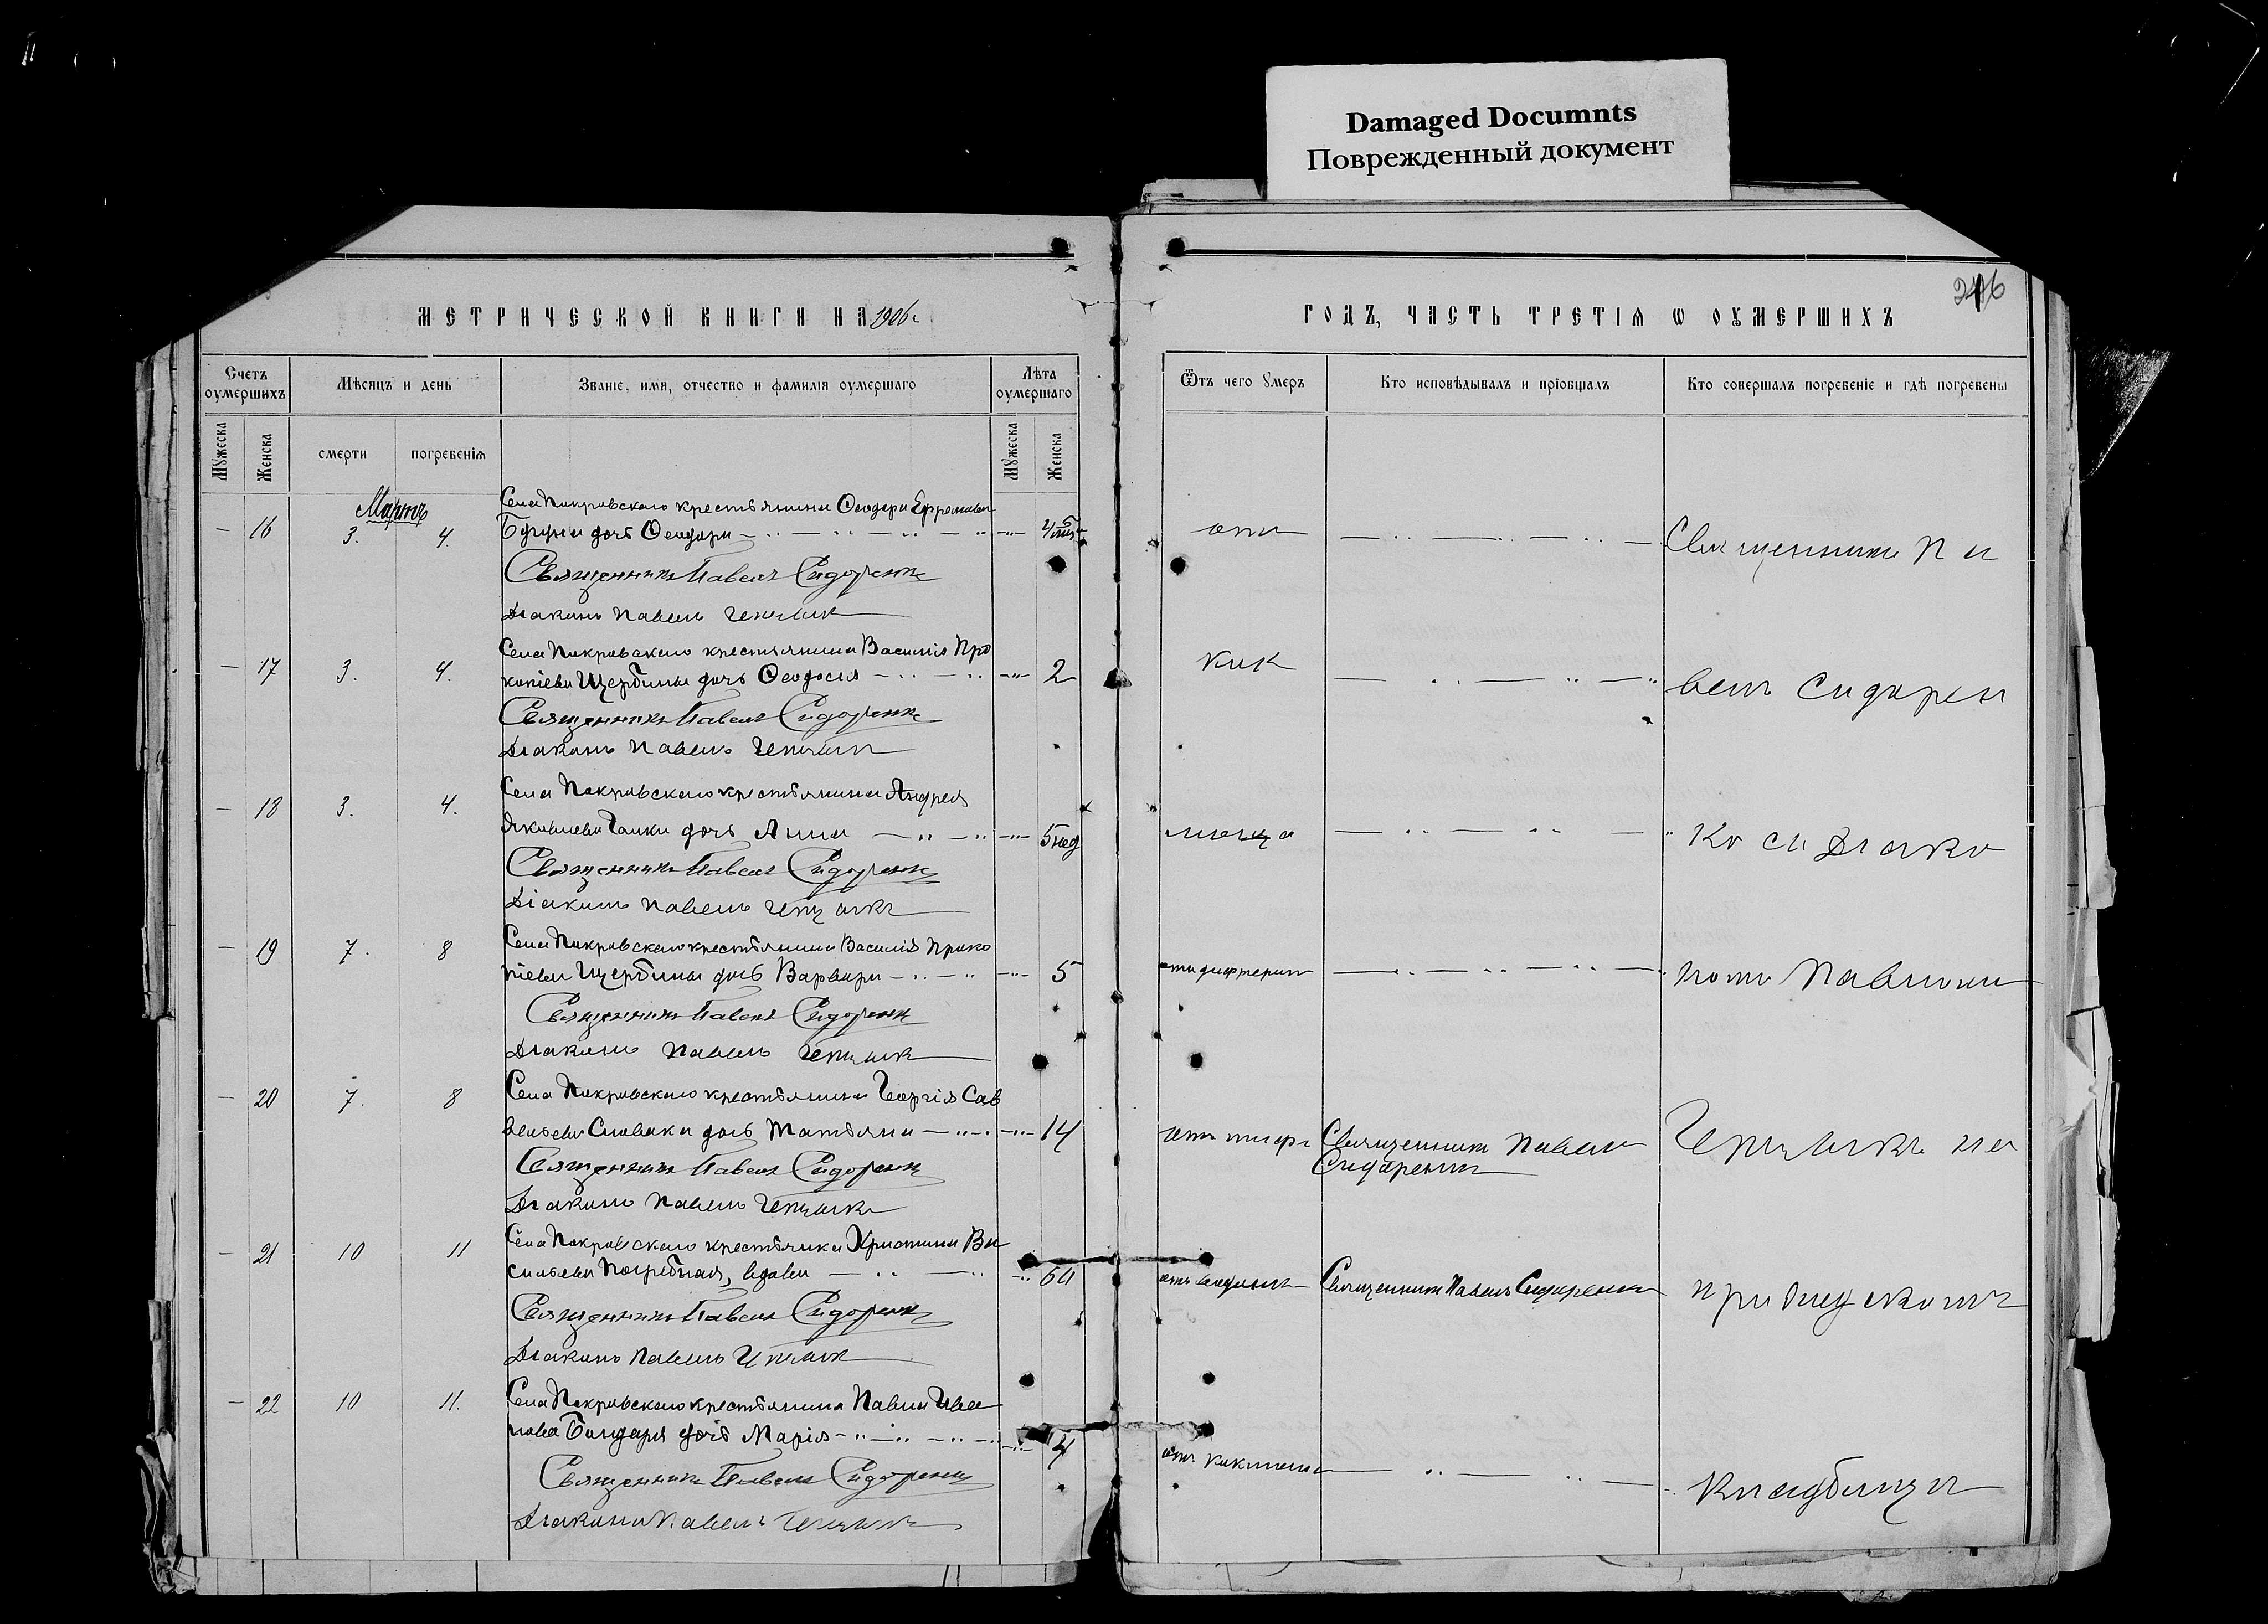 Damaged Documnts
Поврежденный документ
МЕТРИЧЕСКОЙ КНИГИ НА 1906 г.
ГОДЪ, ЧАСТЬ ТРЕТІЯ Ѡ ОУМЕРШИХЪ
Счетъ оумершихъ
Мѣсяцъ и день
Званіе, имя, отчество и фамилія оумершаго
Лѣта оумершаго
Ѿтъ чего умеръ
Кто исповѣдывалъ и пріобщалъ
Кто совершалъ погребеніе и гдѣ погребены
Мужеска
Женска
смерти
погребенія
Мужеска
Женска
Мартъ
Села Покровскаго крестьянина Ѳеодора Ефремова
16 3. 4. дочь Ѳеодора отъ Священникъ Па
Священникъ Павелъ Сидоренко
Діаконъ Павелъ
Села Покровскаго крестьянина Василія Про
17 3. 4. копіева Щербины дочь Ѳеодосія 2 кок велъ Сидорен
Священникъ Павелъ Сидоренко
Діаконъ Павелъ
Села Покровскаго крестьянина Андрея
18 3. 4. Яковлева дочь Анна 5 нед люша ко съ Діако
Священникъ Павелъ Сидоренко
Діаконъ Павелъ
Села Покровскаго крестьянина Василія Проко
19 7. 8 піева Щербины дочь Варвара 5 отъ дифтерита номъ Павломъ
Священникъ Павелъ Сидоренко
Діаконъ Павелъ
Села Покровскаго крестьянина Георгія Сав
20 7. 8 вельева Спивака дочь Татьяна 14 отъ тифа Священникъ Павелъ Сидоренко на
Священникъ Павелъ Сидоренко
Діаконъ Павелъ
Села Покровскаго крестьянка Христина Ва
21 10 11 сильева Погребная, вдова отъ Священникъ Павелъ Сидоренко приходскомъ
Священникъ Павелъ Сидоренко
Діаконъ Павелъ
Села Покровскаго крестьянина Павла Ива
22 10 11. нова Бондаря дочь Марія 4 отъ коклюша кладбищѣ
Священникъ Павелъ Сидоренко
Діаконъ Павелъ